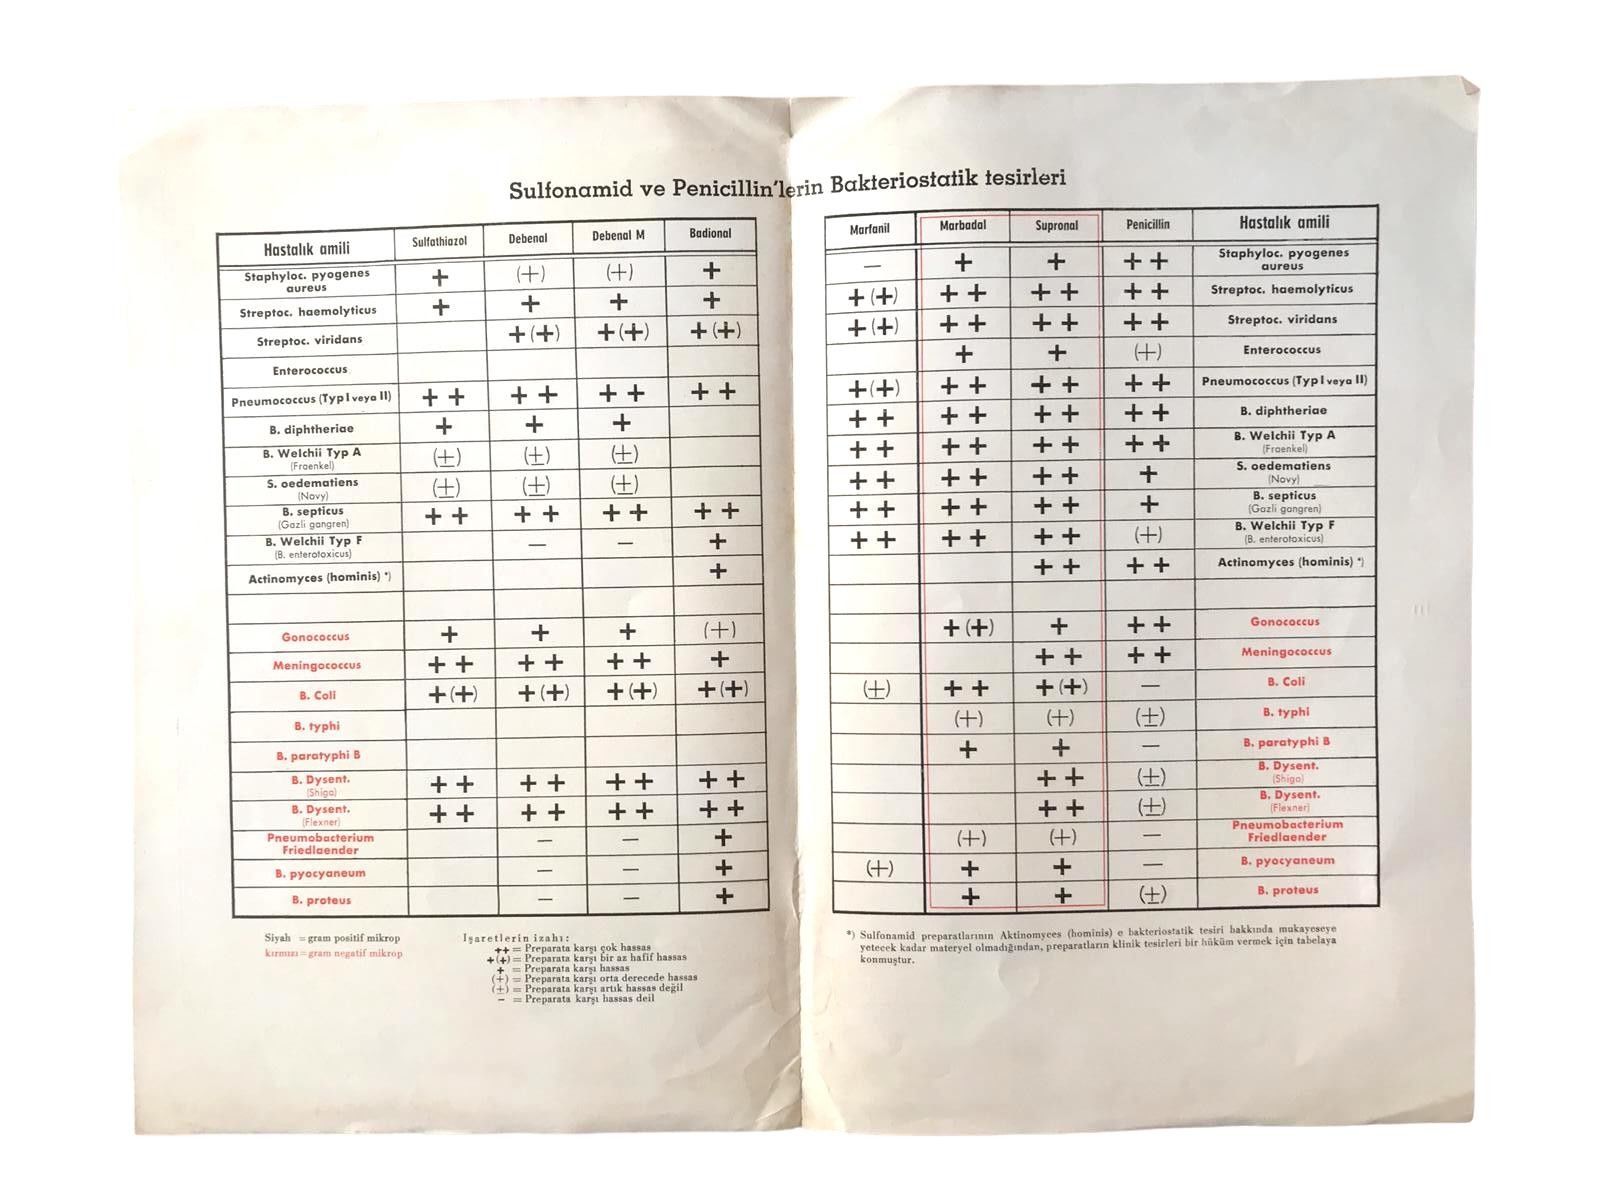 Sulfonamid ve Penicillin'lerin Bakteriostatik tesirleri
Hastalık amili Sulfathiazol Debenal Debenal M Badional
Staphyloc. pyogenes aureus + (+) (+) +
Streptoc. haemolyticus + + + +
Streptoc. viridans +(+) +(+) +(+)
Enterococcus
Pneumococcus (Typ I veya II) ++ ++ ++ ++
B. diphtheriae + + +
B. Welchii Typ A (Fraenkel) (±) (±) (±)
S. oedematiens (Novy) (±) (±) (±)
B. septicus (Gazli gangren) ++ ++ ++ ++
B. Welchii Typ F (B. enterotoxicus) — — +
Actinomyces (hominis) *) +
Gonococcus + + + (+)
Meningococcus ++ ++ ++ +
B. Coli +(+) +(+) +(+) +(+)
B. typhi
B. paratyphi B
B. Dysent. (Shiga) ++ ++ ++ ++
B. Dysent. (Flexner) ++ ++ ++ ++
Pneumobacterium Friedlaender — — +
B. pyocyaneum — — +
B. proteus — — +
Siyah = gram positif mikrop
kırmızı = gram negatif mikrop
Işaretlerin izahı:
++ = Preparata karşı çok hassas
+(+) = Preparata karşı bir az hafif hassas
+ = Preparata karşı hassas
(+) = Preparata karşı orta derecede hassas
(±) = Preparata karşı artık hassas değil
— = Preparata karşı hassas deil
Marfanil Marbadal Supronal Penicillin Hastalık amili
— + + ++ Staphyloc. pyogenes aureus
+(+) ++ ++ ++ Streptoc. haemolyticus
+(+) ++ ++ ++ Streptoc. viridans
+ + (+) Enterococcus
+(+) ++ ++ ++ Pneumococcus (Typ I veya II)
++ ++ ++ ++ B. diphtheriae
++ ++ ++ ++ B. Welchii Typ A (Fraenkel)
++ ++ ++ + S. oedematiens (Novy)
++ ++ ++ + B. septicus (Gazli gangren)
++ ++ ++ (+) B. Welchii Typ F (B. enterotoxicus)
++ ++ Actinomyces (hominis) *)
+(+) + ++ Gonococcus
++ ++ Meningococcus
(±) ++ +(+) — B. Coli
(+) (+) (±) B. typhi
+ + — B. paratyphi B
++ (±) B. Dysent. (Shiga)
++ (±) B. Dysent. (Flexner)
(+) (+) — Pneumobacterium Friedlaender
(+) + + — B. pyocyaneum
+ + (±) B. proteus
*) Sulfonamid preparatlarının Aktinomyces (hominis) e bakteriostatik tesiri hakkında mukayeseye
yetecek kadar materyel olmadığından, preparatların klinik tesirleri bir hüküm vermek için tabelaya
konmuştur.